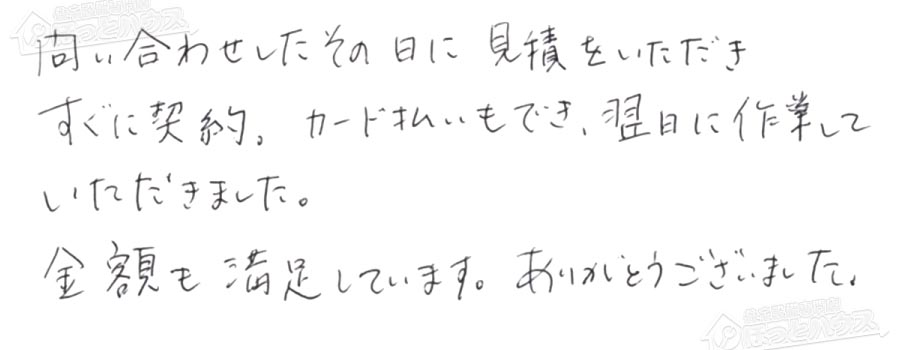 問い合わせしたその日に見積をいただき
すぐに契約。カード払いもでき、翌日に作業して
いただきました。
金額も満足しています。ありがとうございました。
ほっとハウス